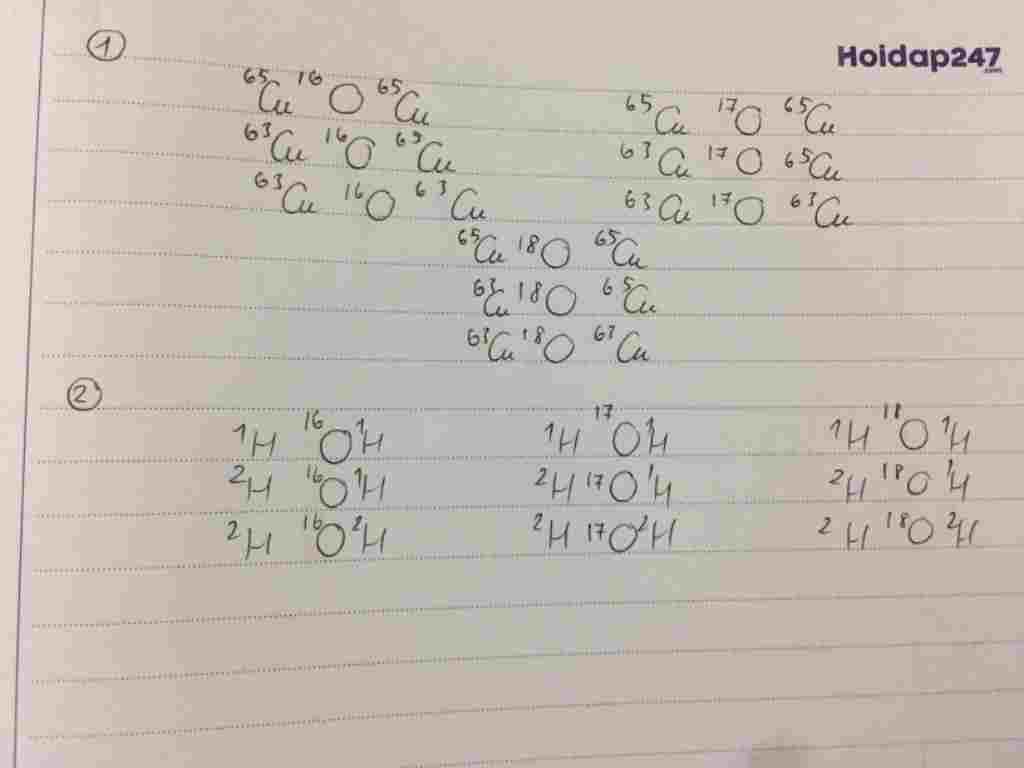 ①
Hoidap247
.com
⁶⁵Cu ¹⁶O ⁶⁵Cu ⁶⁵Cu ¹⁷O ⁶⁵Cu
⁶³Cu ¹⁶O ⁶⁵Cu ⁶³Cu ¹⁷O ⁶⁵Cu
⁶³Cu ¹⁶O ⁶³Cu ⁶³Cu ¹⁷O ⁶³Cu
⁶⁵Cu ¹⁸O ⁶⁵Cu
⁶³Cu ¹⁸O ⁶⁵Cu
⁶³Cu ¹⁸O ⁶³Cu
②
¹H ¹⁶O ¹H ¹H ¹⁷O ¹H ¹H ¹⁸O ¹H
²H ¹⁶O ¹H ²H ¹⁷O ¹H ²H ¹⁸O ¹H
²H ¹⁶O ²H ²H ¹⁷O ²H ²H ¹⁸O ²H